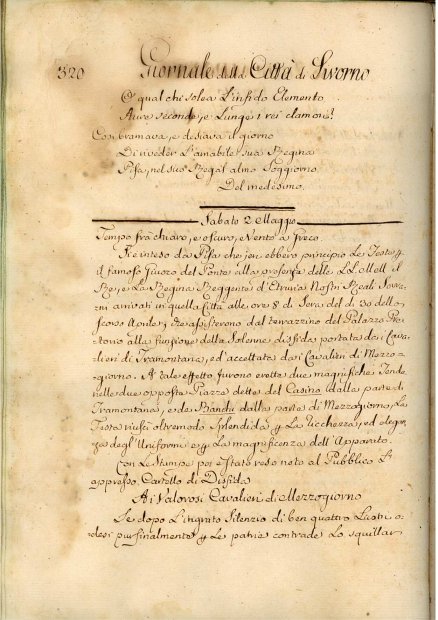 320 Giornale della Città di Livorno
O qual chè solea L'infido Elemento
Aure seconde, e Lunge i rei clamori?
Con bramava, e desiava il giorno
Di riveder L'amabile sua Regina
Pisa, nel suo Regal almo Soggiorno
Del medesimo.
Sabato 2. Maggio
Tempo frà chiaro, e oscuro, e Vento a Greco.
inteso da Pisa che jeri ebbero principio Le Feste p
il famoso Giuoco del Ponte alla presenza delle LL. MM. il
Re, e La Regina Reggente d'Etruria Nostri Reali Sovra-
ni arrivati in quella Città alle ore 8 di Sera del dì 30 dello
scorso Aprile, assisterono dal terrazzino del Palazzo Pre-
torio alla funzione della Solenne disfida portata dai Cava-
lieri di Tramontana, ed accettata dai Cavalieri di Mezzo-
giorno. A tale effetto furono erette due magnifiche Tende
nelle due opposte Piazze dette del Casino dalla parte di
Tramontana, e de Bandu dalla parte di Mezzogiorno. La
Festa riuscì oltremodo Splendida p La ricchezza, ed elegan-
za degl'Uniformi e p La magnificenza dell'Apparato.
Con Le Stampe poi è Stato reso noto al Pubblico Il
appresso Cartello di Disfida
Ai Valorosi Cavalieri di Mezzogiorno
Se dopo L'ingrato Silenzio di ben quattro Lustri o-
desi pur finalmente p Le patrie contrade Lo squillar